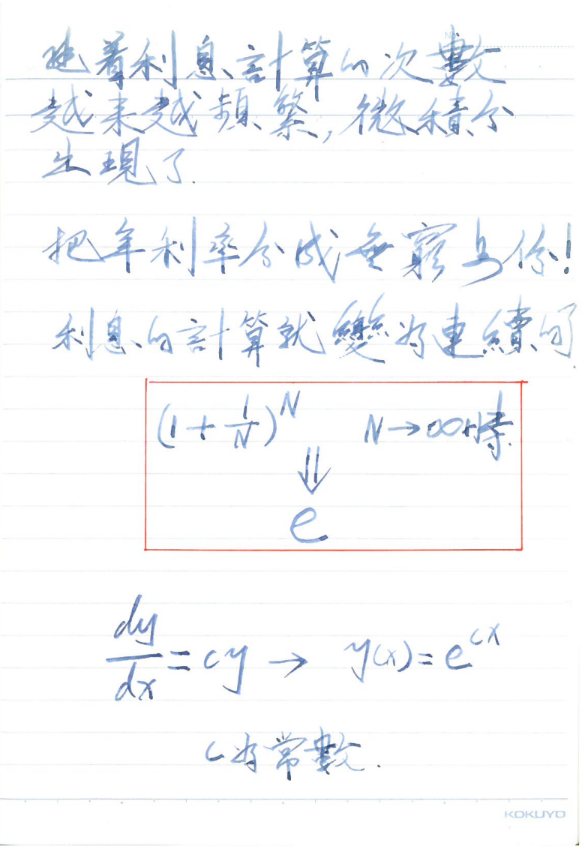 隨着利息計算的次數
越来越頻繁,微積分
出現了.
把年利率分成無窮多份!
利息的計算就變為連續的
(1+1/N)^N N→∞時.
⇓
e
dy/dx=cy → y(x)=e^cx
c為常數.
KOKUYO